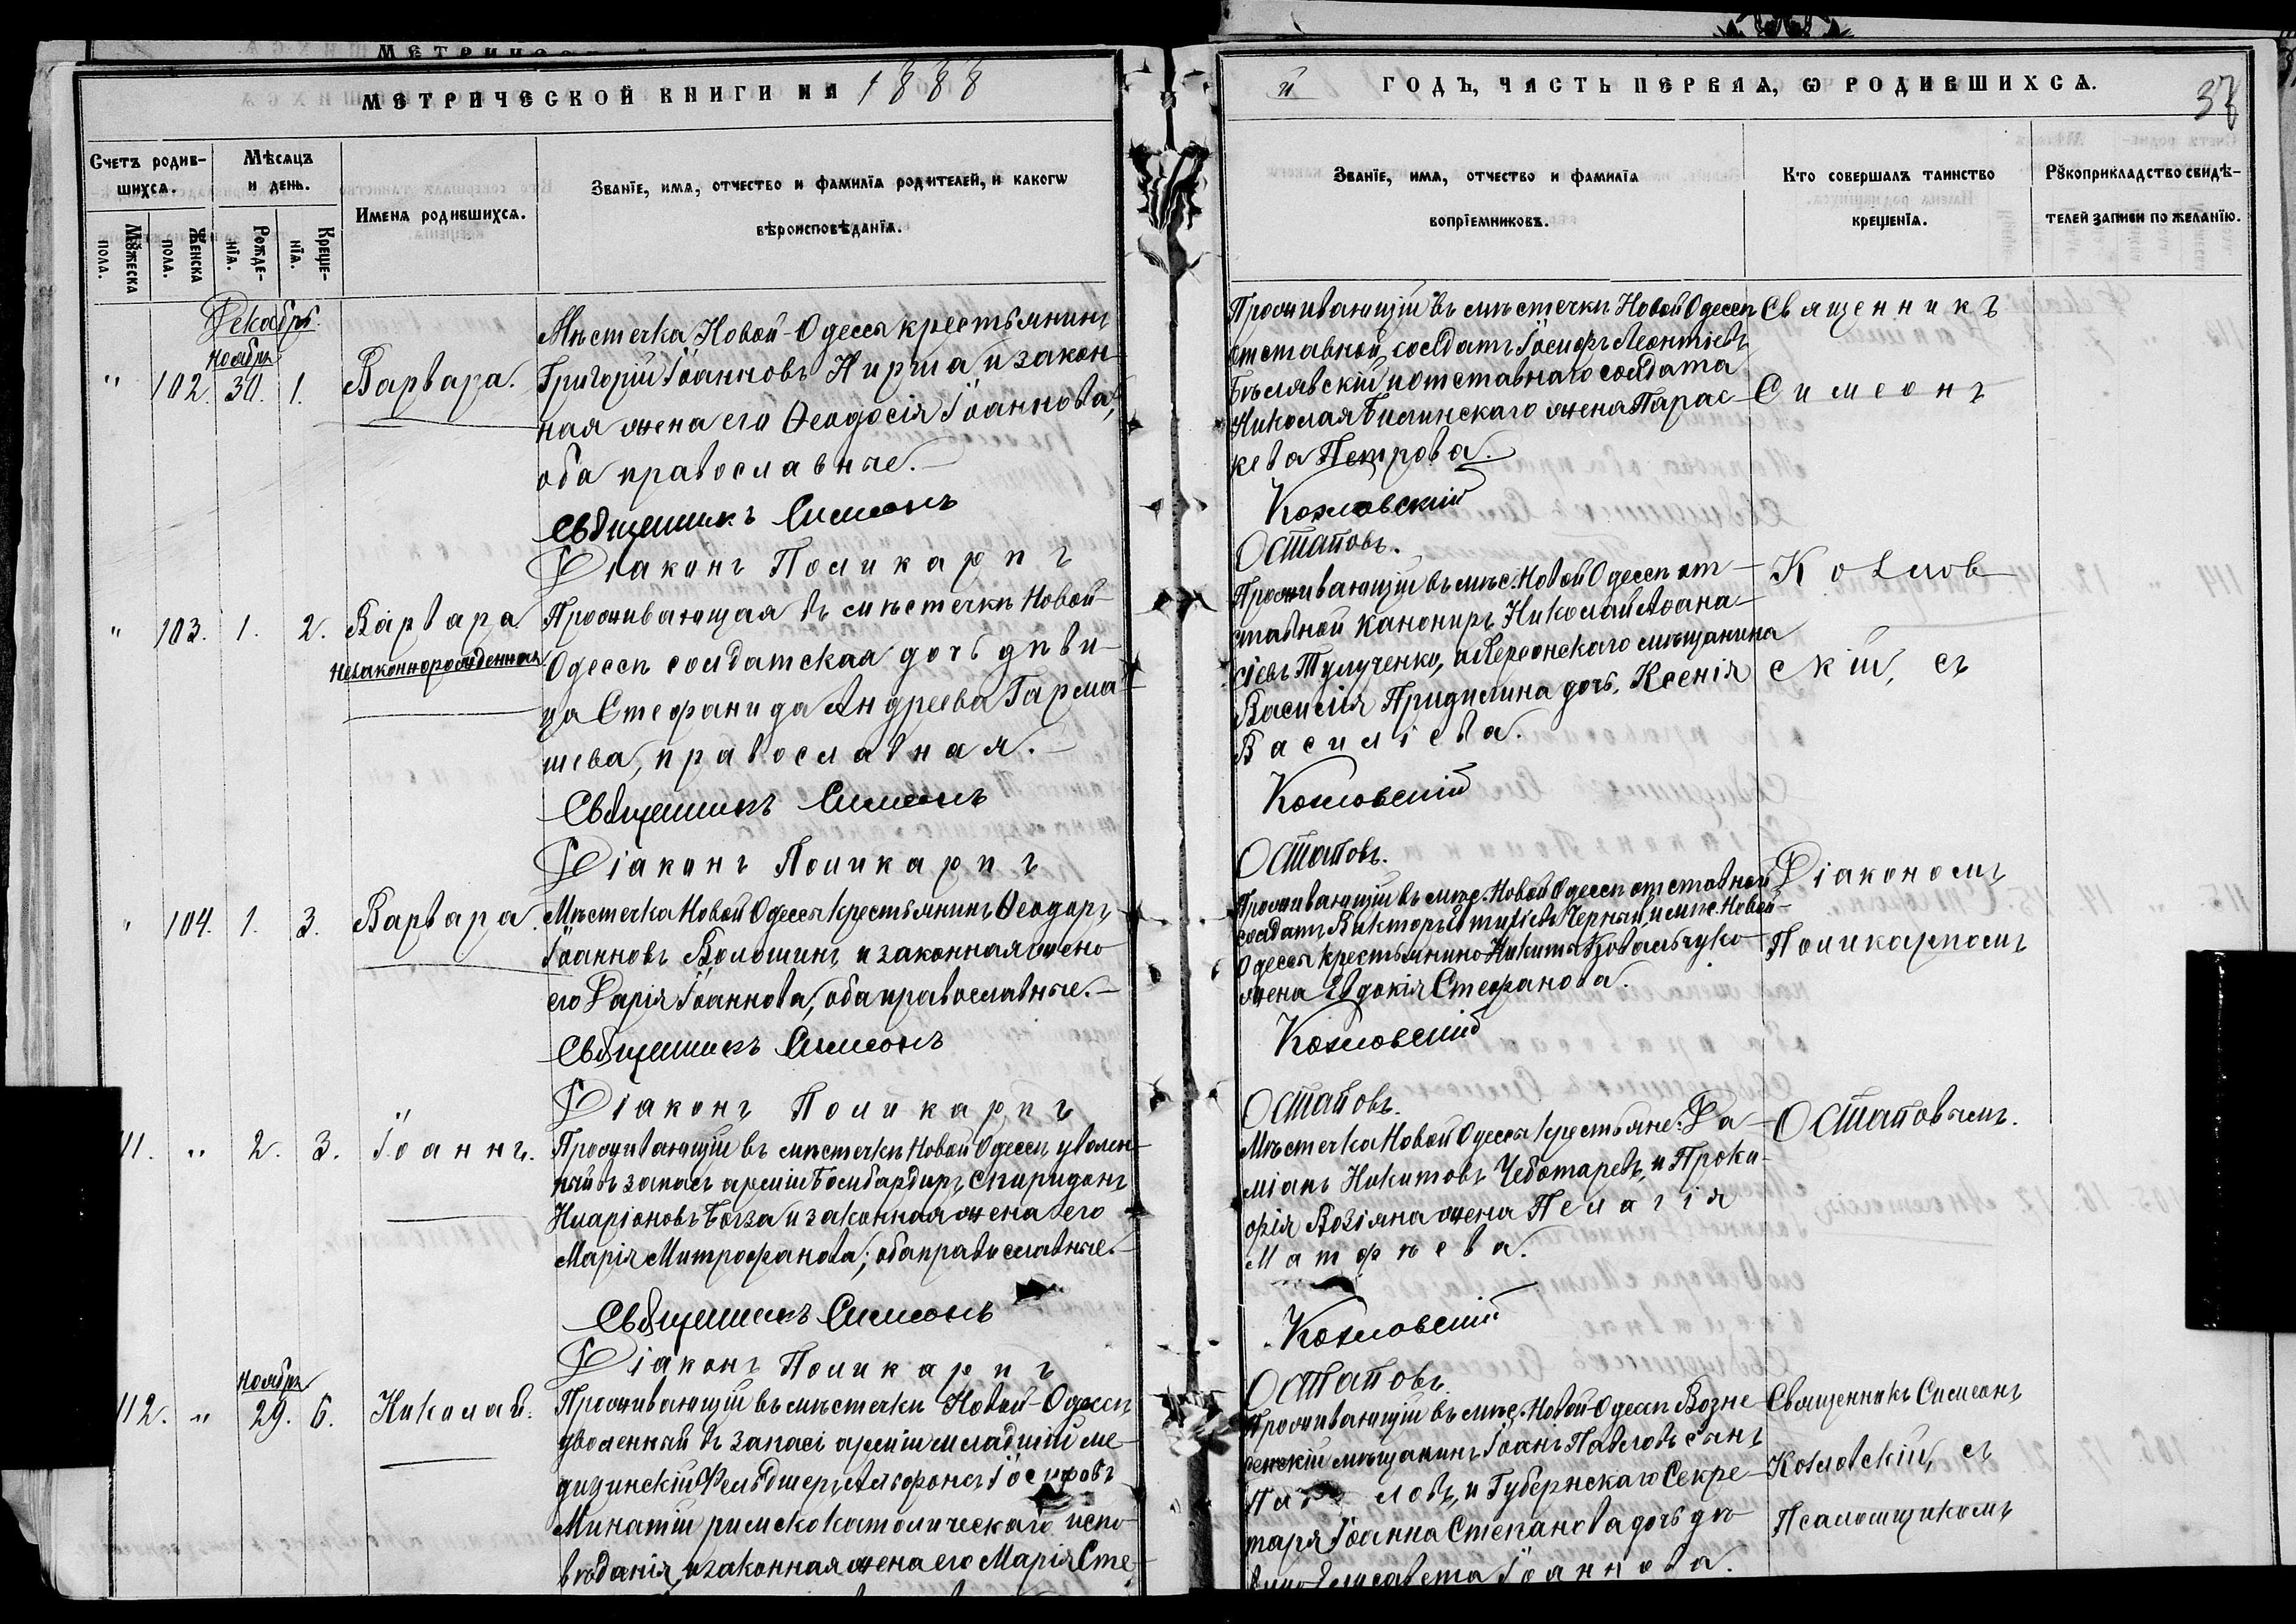 МЕТРИЧЕСКОЙ КНИГИ НА 1888
Счетъ родив-
шихся.
Мѣсяцъ
и день.
Имена родившихся.
Званїе, имя, отчество и фамилїя родителей, и какогѡ
вѣроисповѣданїя.
Мꙋжеска
пола.
Женска
пола.
Рожде-
нїя.
Креще-
нїя.
Декабрь.
Ноябрь
" 102. 30. 1. Варвара.
Мѣстечка Новой-Одессы крестьянинъ
Григорій Іоанновъ Кирпа и закон-
ная жена его Ѳеодосія Іоаннова,
оба православные.
Священникъ Симеонъ
Діаконъ Поликарпъ
" 103. 1. 2. Варвара
незаконнорожденная
Проживающая въ мѣстечкѣ Новой
Одессѣ солдатская дочь дѣви-
ца Стефанида Андреева Гарма-
шева, православная.
Священникъ Симеонъ
Діаконъ Поликарпъ
" 104. 1. 3. Варвара.
Мѣстечка Новой Одессы крестьянинъ Ѳеодоръ
Іоанновъ Волошинъ и законная жена
его Дарія Іоаннова, оба православные.
Священникъ Симеонъ
Діаконъ Поликарпъ
111. " 2. 3. Іоаннъ.
Проживающій въ мѣстечкѣ Новой Одессѣ уволен-
ный въ запасъ арміи Бомбардиръ Спиридонъ
Иларіоновъ Богза и законная жена его
Марія Митрофанова; оба православные.
Священникъ Симеонъ
Діаконъ Поликарпъ
Ноябрь
112. " 29. 6. Николай.
Проживающій въ мѣстечкѣ Новой-Одессѣ
уволенный въ запасъ арміи младшій ме-
дицинскій Фельдшеръ Альфонсъ Іосифовъ
римскокатолическаго испо-
вѣданія, и законная жена его Марія Сте-
й ГОДЪ, ЧАСТЬ ПЕРВАЯ, Ѡ РОДИВШИХСЯ.
38
Званїе, имя, отчество и фамилїя
воприемниковъ.
Кто совершалъ таинство
крещенїя.
Рꙋкоприкладство свидѣ-
телей записи по желанїю.
Проживающій въ мѣстечкѣ Новой Одессѣ
отставной солдатъ Іосифъ Леонтіевъ
Бѣлявскій и отставнаго солдата
Николая Билинскаго жена Парас-
кева Петрова.
Козловскій
Остаповъ.
Проживающій въ мѣс. Новой Одессѣ от-
ставной канониръ Николай Аѳана-
сіевъ Тулученко, и Херсонскаго мѣщанина
Василія Придилина дочь, Ксенія
Василіева.
Козловскій
Остаповъ.
Проживающій въ мѣс. Новой Одессѣ отставной
солдатъ Викторъ Черный, и мѣс. Новой
Одессы крестьянина Никиты Ковальчука
жена Евдокія Стефанова.
Козловскій
Остаповъ.
Мѣстечка Новой Одессы крестьяне: Да-
міанъ Никитовъ Чеботаревъ, и Проко-
фія Возіяна жена Пелагія
Матфѣева.
Козловскій
Остаповъ
Проживающій въ мѣс. Новой-Одессѣ Возне-
сенскій мѣщанинъ Іоанъ Павловъ сынъ
и Губернскаго Секре-
таря Іоанна Степанова дочь дѣ-
вица Елисавета Іоаннова.
Священникъ
Симеонъ
Козлов-
скій, съ
Діакономъ
Поликарпомъ
Остаповымъ.
Священникъ Симеонъ
Козловскій, съ
Псаломщикомъ